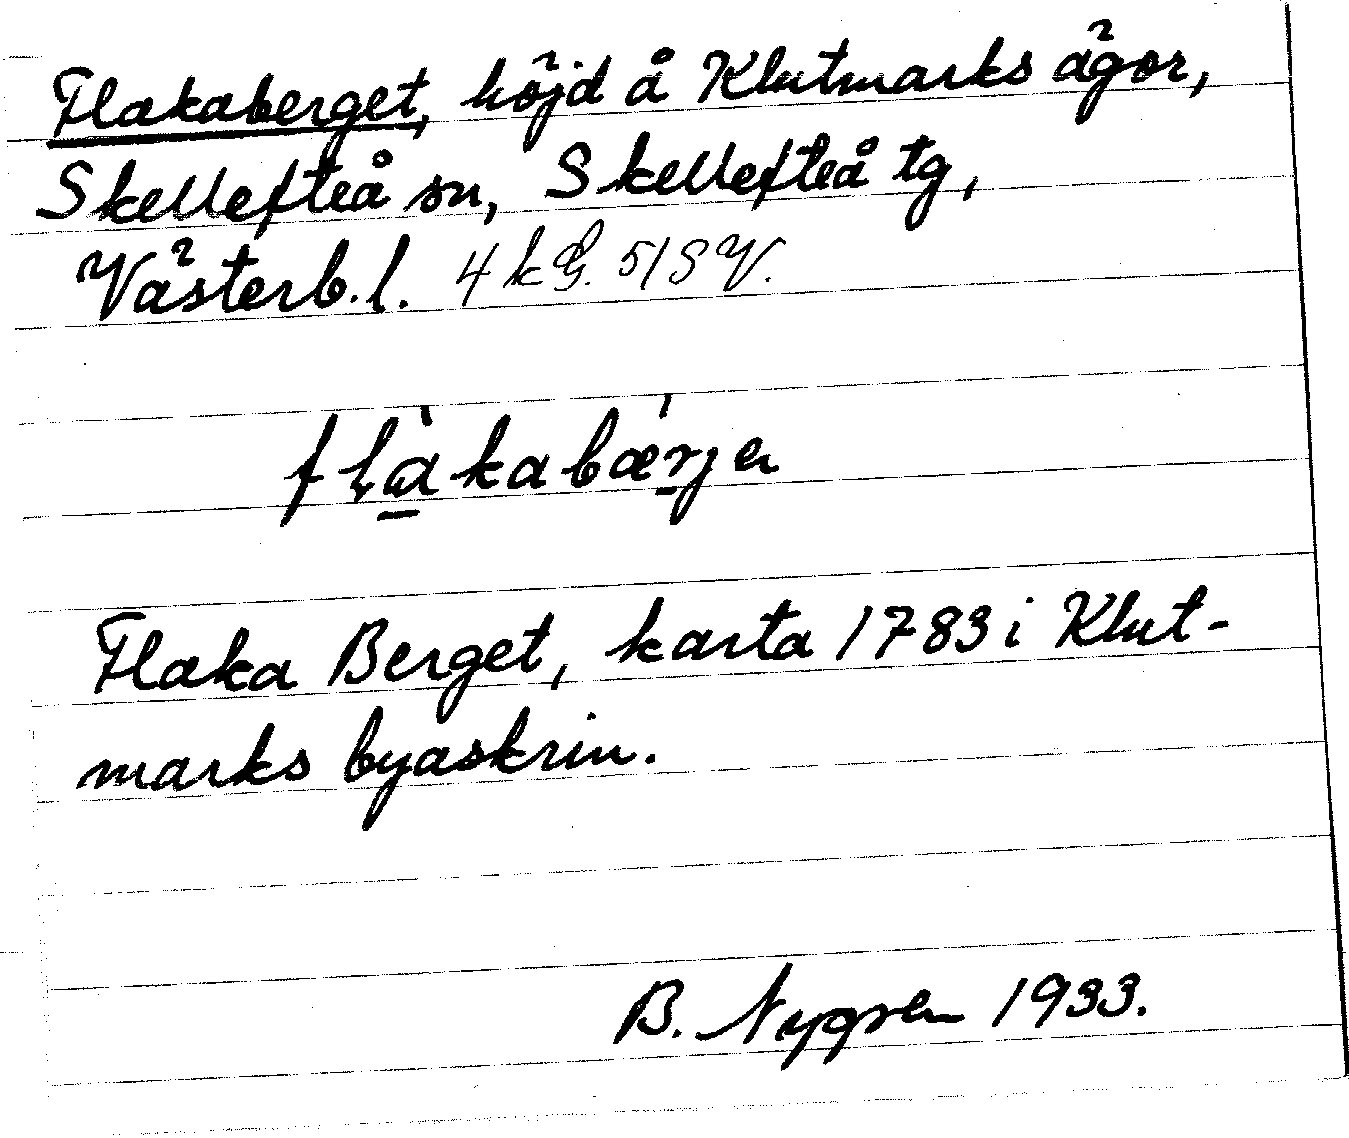 Flakaberget, höjd å Klutmarks ägor,
Skellefteå sn, Skellefteå tg,
Västerb.l. 4 k G. 51 S V.
flàkabǽrjen
Flaka Berget, karta 1783 i Klut-
marks byaskrin.
B. Nygren 1933.